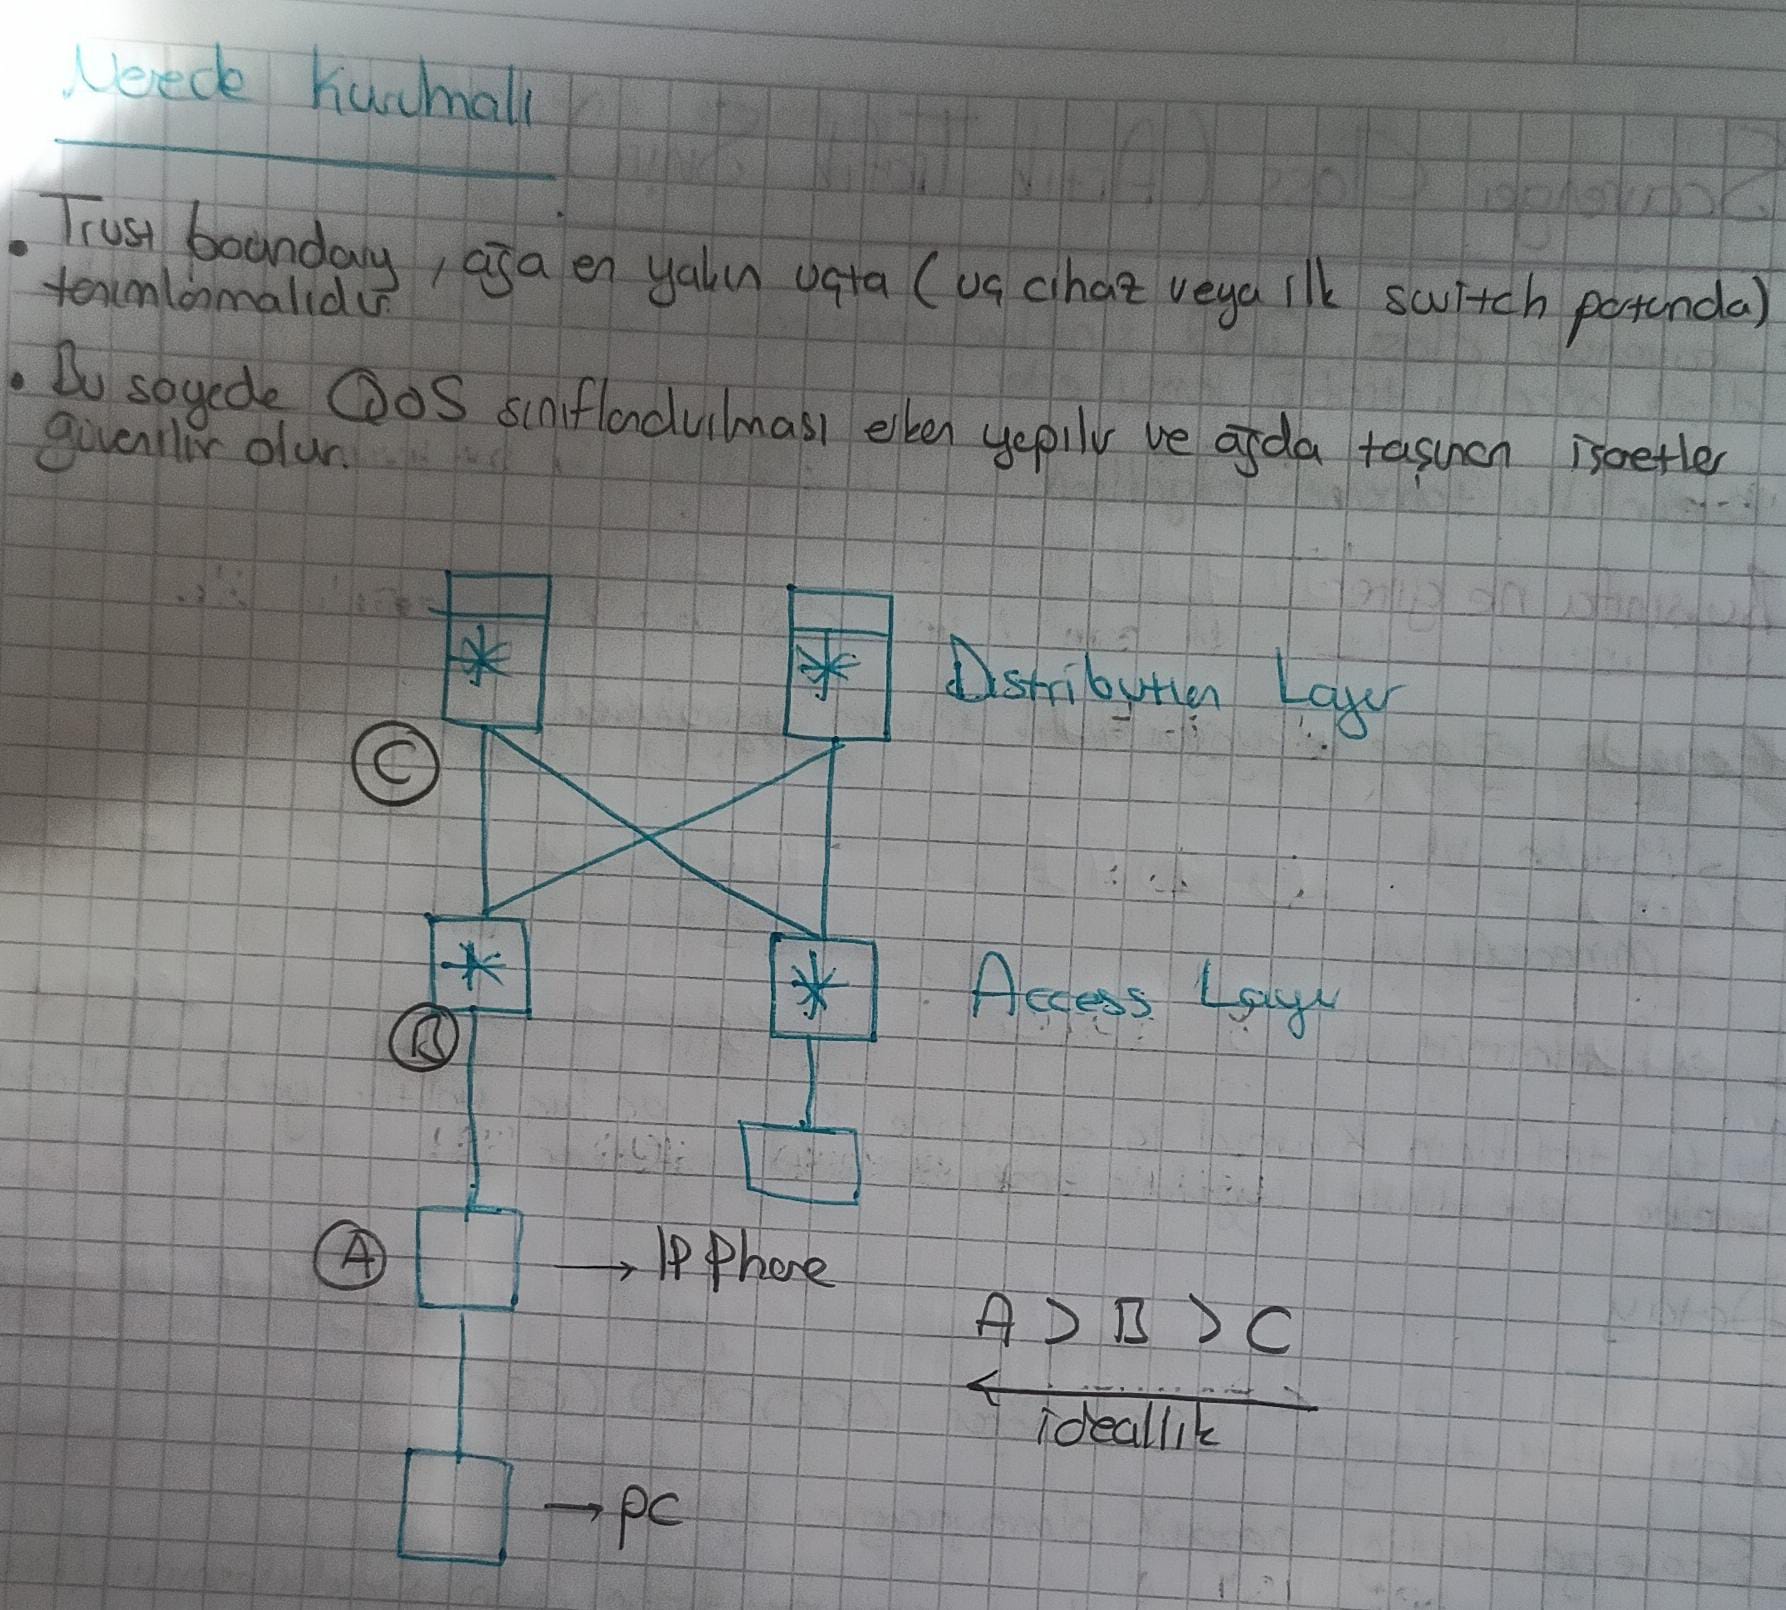 Nerede Kurulmalı
• Trust boundary, ağa en yakın uçta (uç cihaz veya ilk switch portunda)
tanımlanmalıdır.
• Bu sayede QoS sınıflandırılması erken yapılır ve ağda taşınan işaetler
güvenilir olur.
Distribution Layer
C
Access Layer
B
A → IP Phone
A > B > C
ideallik
→ PC